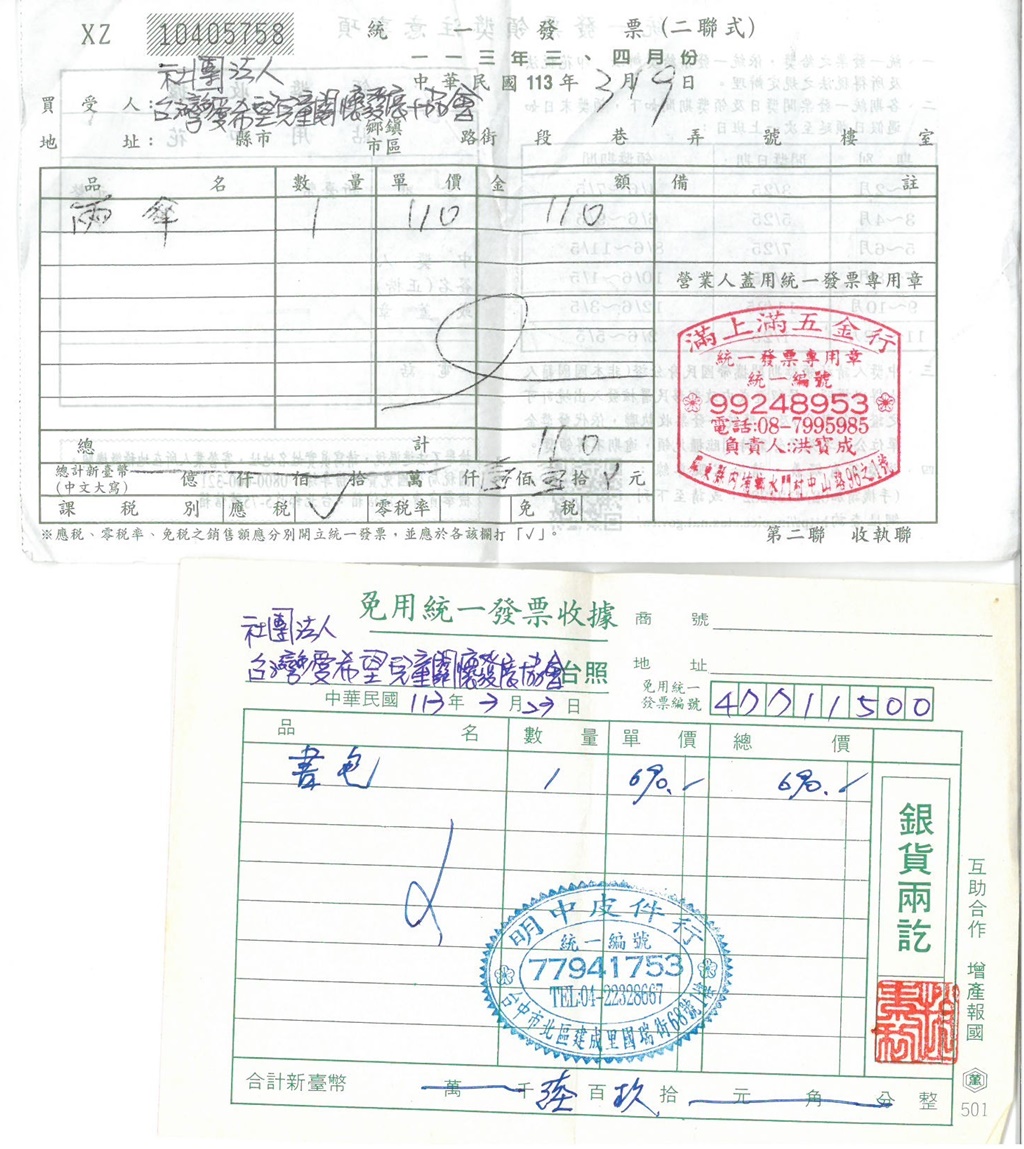 XZ 10405758 統一發票(二聯式)
一一三年三、四月份
中華民國113年3月19日
社團法人
買受人:台灣愛希望兒童關懷發展協會
地址: 縣市 鄉鎮市區 路街 段 巷 弄 號 樓 室
品名 數量 單價 金額 備註
雨傘 1 110 110
營業人蓋用統一發票專用章
滿上滿五金行
統一發票專用章
統一編號
99248953
電話:08-7995985
負責人:洪寶成
屏東縣內埔鄉水門村中山路96之1號
總計 110
總計新臺幣(中文大寫) 億 仟 佰 拾 萬 仟 壹 佰 壹 拾 元
課稅別 應稅 ✓ 零稅率 免稅
※應稅、零稅率、免稅之銷售額應分別開立統一發票,並應於各該欄打「√」。
第二聯 收執聯
免用統一發票收據
商號
社團法人
台灣愛希望兒童關懷發展協會台照
地址
中華民國113年3月29日
免用統一發票編號 40011500
品名 數量 單價 總價
書包 1 690.- 690.-
銀貨兩訖
互助合作 增產報國
明中皮件行
統一編號
77941753
TEL:04-22328667
台中市北區建成里國瑞街68號1樓
合計新臺幣 萬 千 陸 百 玖 拾 元 角 分 整
萬
501